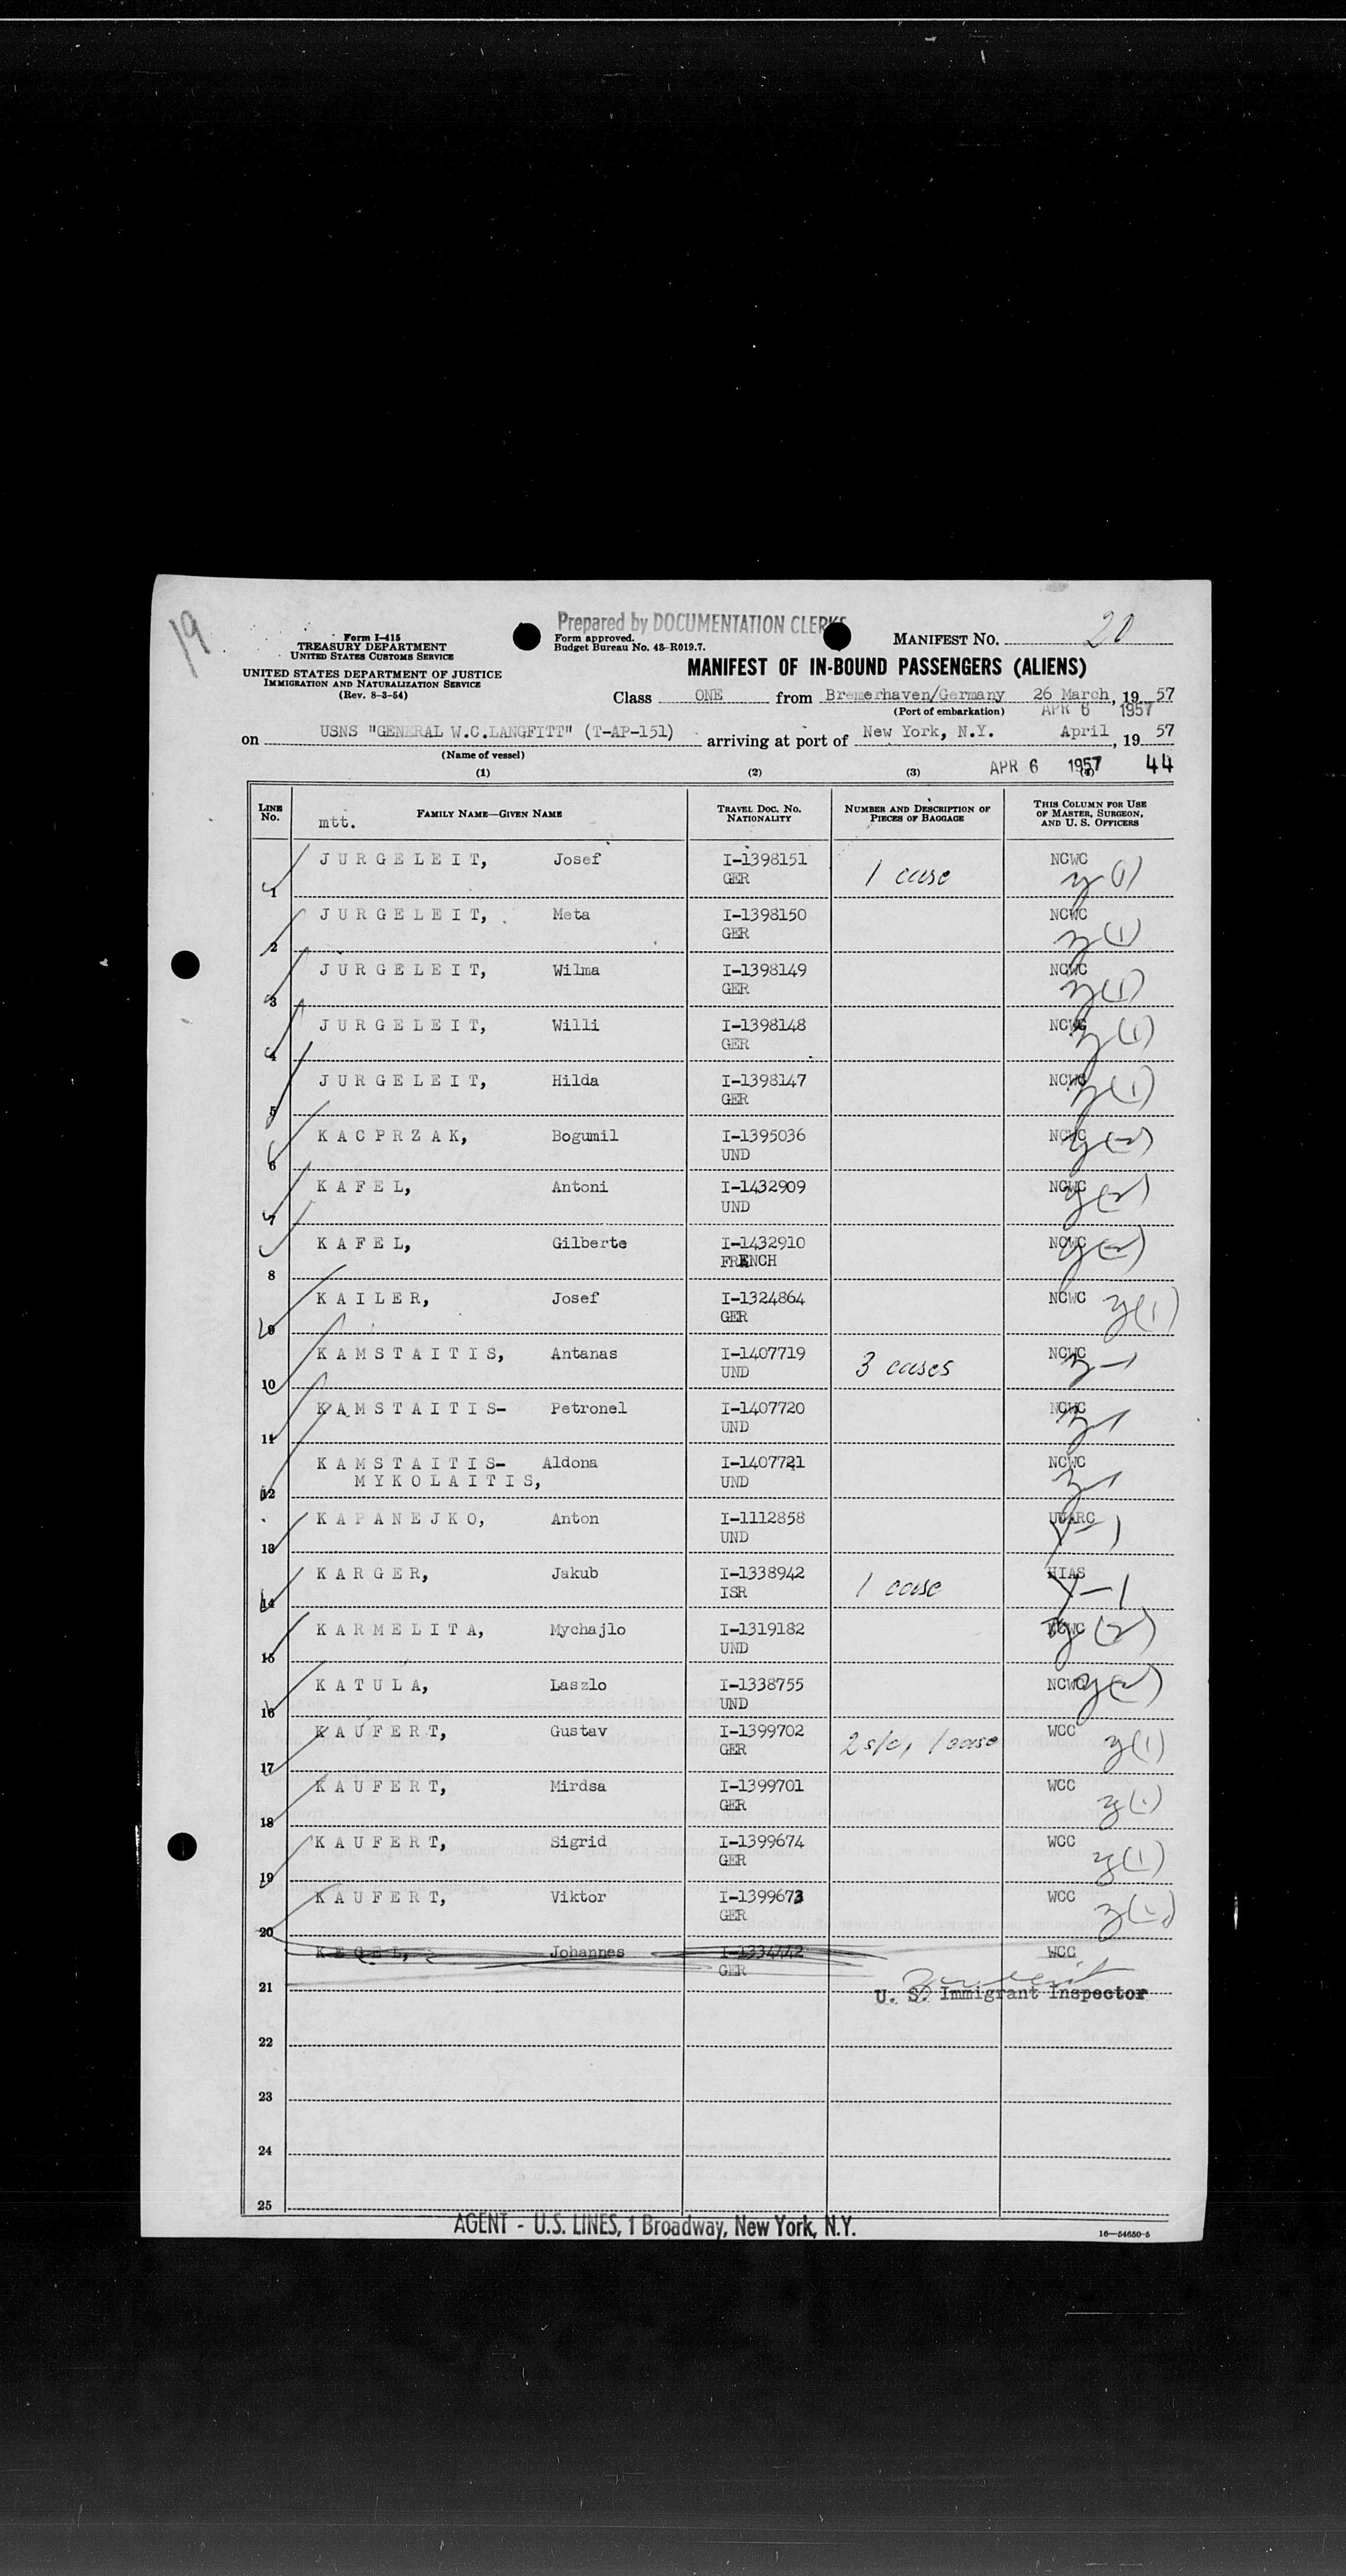 19
Prepared by DOCUMENTATION CLERKS
Form I-415
TREASURY DEPARTMENT
UNITED STATES CUSTOMS SERVICE
Form approved.
Budget Bureau No. 43-R019.7.
MANIFEST NO. 20
UNITED STATES DEPARTMENT OF JUSTICE
IMMIGRATION AND NATURALIZATION SERVICE
(Rev. 8-3-54)
MANIFEST OF IN-BOUND PASSENGERS (ALIENS)
Class ONE from Bremerhaven/Germany 26 March, 19 57
(Port of embarkation) APR 6 1957
on USNS "GENERAL W.C.LANGFITT" (T-AP-151) arriving at port of New York, N.Y. April, 19 57
(Name of vessel)
APR 6 1957 44
(1) (2) (3)
LINE NO. FAMILY NAME—GIVEN NAME TRAVEL DOC. NO. NATIONALITY NUMBER AND DESCRIPTION OF PIECES OF BAGGAGE THIS COLUMN FOR USE OF MASTER, SURGEON, AND U. S. OFFICERS
mtt.
1 JURGELEIT, Josef I-1398151 GER 1 case NCWC y (1)
2 JURGELEIT, Meta I-1398150 GER NCWC y (1)
3 JURGELEIT, Wilma I-1398149 GER NCWC y (1)
4 JURGELEIT, Willi I-1398148 GER NCWC y (1)
5 JURGELEIT, Hilda I-1398147 GER NCWC y (1)
6 KACPRZAK, Bogumil I-1395036 UND NCWC y (2)
7 KAFEL, Antoni I-1432909 UND NCWC y (2)
8 KAFEL, Gilberte I-1432910 FRENCH NCWC y (2)
9 KAILER, Josef I-1324864 GER NCWC y (1)
10 KAMSTAITIS, Antanas I-1407719 UND 3 cases NCWC y-1
11 KAMSTAITIS- Petronel I-1407720 UND NCWC y-1
12 KAMSTAITIS- Aldona I-1407721 UND NCWC y-1
MYKOLAITIS,
13 KAPANEJKO, Anton I-1112858 UND UUARC y-1
14 KARGER, Jakub I-1338942 ISR 1 case HIAS y-1
15 KARMELITA, Mychajlo I-1319182 UND NCWC y (2)
16 KATULA, Laszlo I-1338755 UND NCWC y (2)
17 KAUFERT, Gustav I-1399702 GER 2 s/c, 1 case WCC y (1)
18 KAUFERT, Mirdsa I-1399701 GER WCC y (1)
19 KAUFERT, Sigrid I-1399674 GER WCC y (1)
20 KAUFERT, Viktor I-1399673 GER WCC y (1)
21 KEGEL, Johannes I-1334442 GER WCC
U. S. Immigrant Inspector
22
23
24
25
AGENT - U.S. LINES, 1 Broadway, New York, N.Y.
16—54650-5